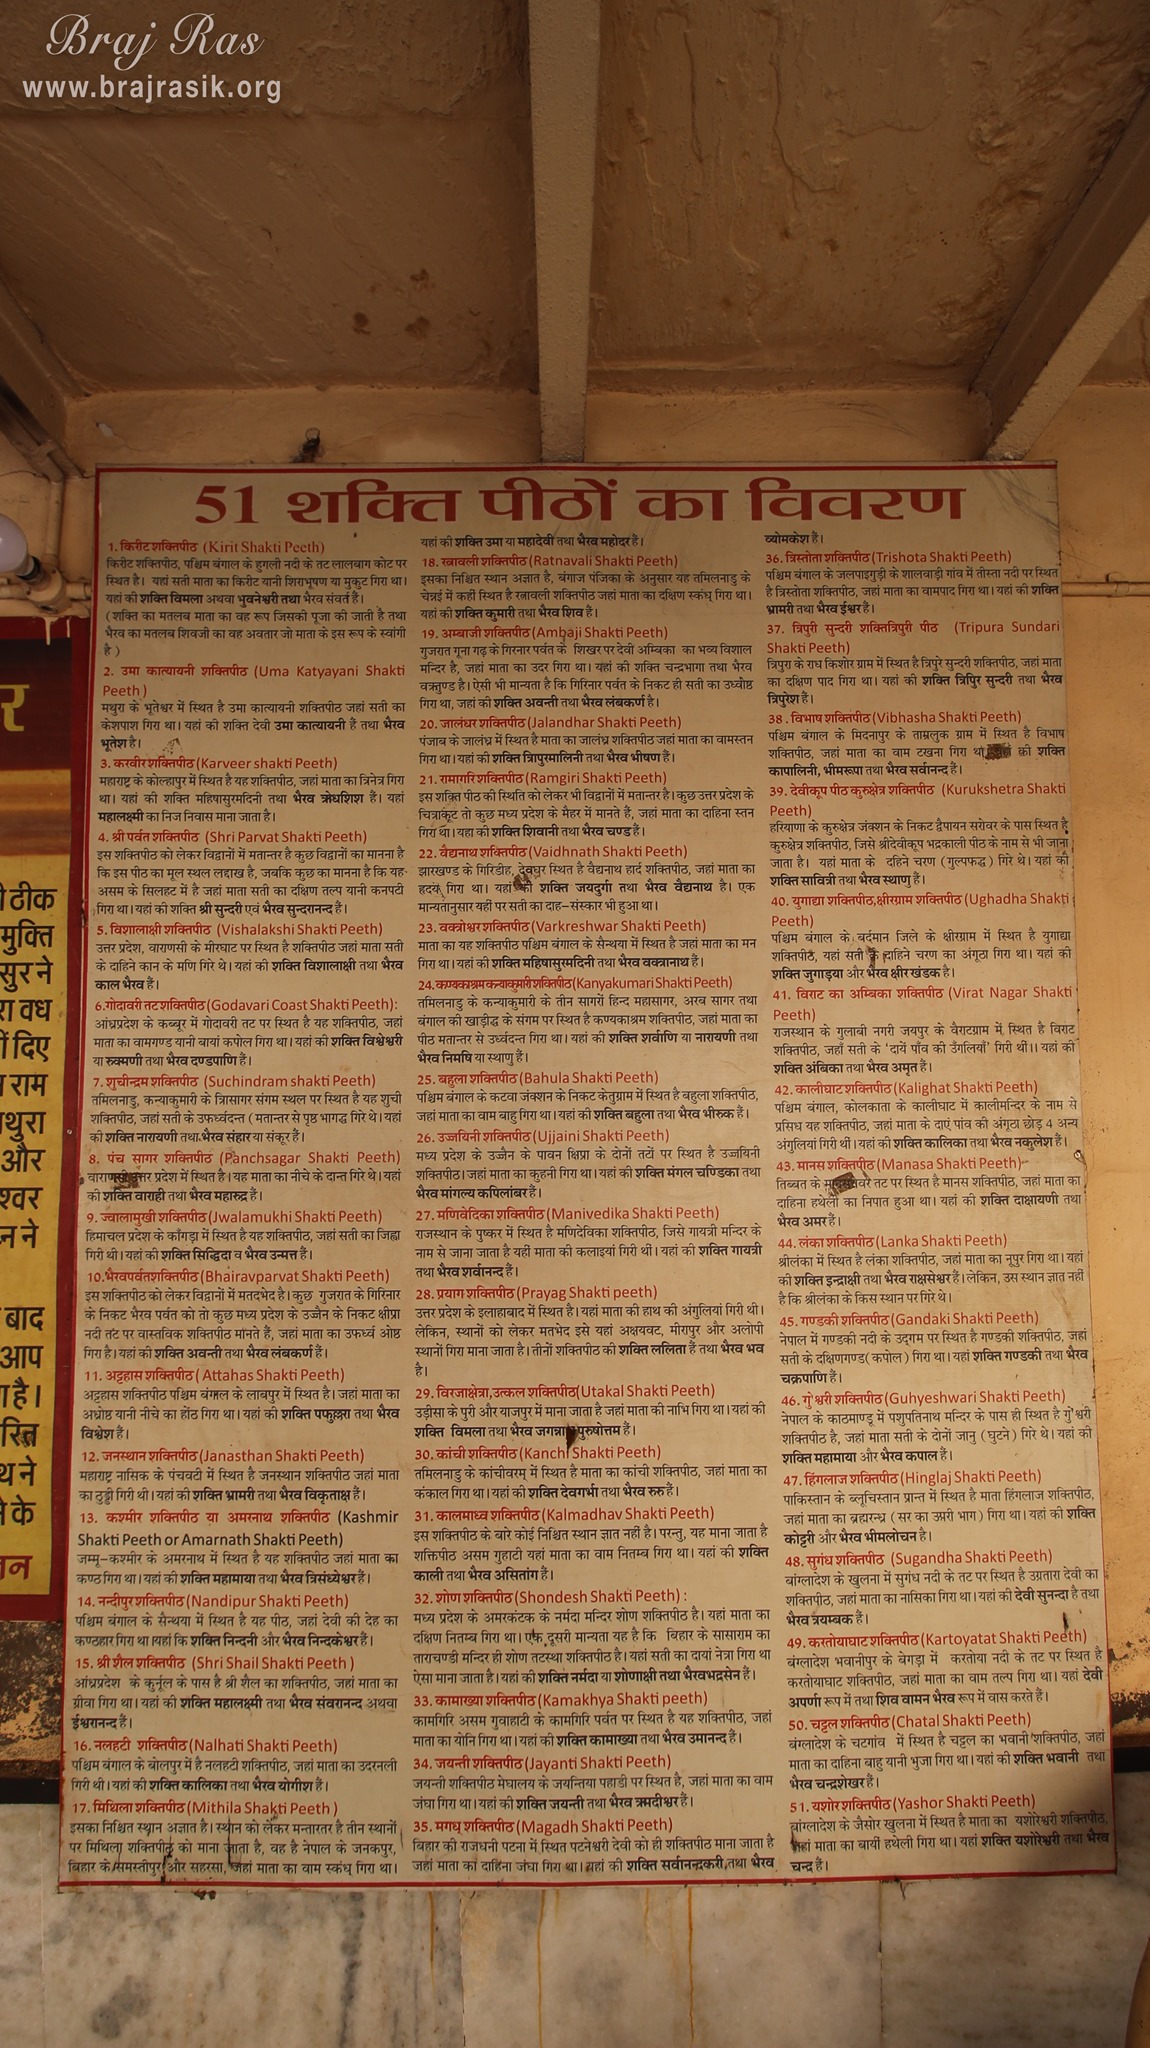 Braj Ras
www.brajrasik.org
51 शक्ति पीठों का विवरण
1. किरीट शक्तिपीठ (Kirit Shakti Peeth)
किरीट शक्तिपीठ, पश्चिम बंगाल के हुगली नदी के तट लालबाग कोट पर
स्थित है। यहां सती माता का किरीट यानी शिराभूषण या मुकुट गिरा था।
यहां की शक्ति विमला अथवा भुवनेश्वरी तथा भैरव संवर्त हैं।
(शक्ति का मतलब माता का वह रूप जिसकी पूजा की जाती है तथा
भैरव का मतलब शिवजी का वह अवतार जो माता के इस रूप के स्वांगी
है )
2. उमा कात्यायनी शक्तिपीठ (Uma Katyayani Shakti
Peeth )
मथुरा के भूतेश्वर में स्थित है उमा कात्यायनी शक्तिपीठ जहां सती का
केशपाश गिरा था। यहां की शक्ति देवी उमा कात्यायनी हैं तथा भैरव
भूतेश है।
3. करवीर शक्तिपीठ (Karveer shakti Peeth)
महाराष्ट्र के कोल्हापुर में स्थित है यह शक्तिपीठ, जहां माता का त्रिनेत्र गिरा
था। यहां की शक्ति महिषासुरमदिनी तथा भैरव क्रोधशिश हैं। यहां
महालक्ष्मी का निज निवास माना जाता है।
4. श्री पर्वत शक्तिपीठ (Shri Parvat Shakti Peeth)
इस शक्तिपीठ को लेकर विद्वानों में मतान्तर है कुछ विद्वानों का मानना है
कि इस पीठ का मूल स्थल लद्दाख है, जबकि कुछ का मानना है कि यह
असम के सिलहट में है जहां माता सती का दक्षिण तल्प यानी कनपटी
गिरा था। यहां की शक्ति श्री सुन्दरी एवं भैरव सुन्दरानन्द हैं।
5. विशालाक्षी शक्तिपीठ (Vishalakshi Shakti Peeth)
उत्तर प्रदेश, वाराणसी के मीरघाट पर स्थित है शक्तिपीठ जहां माता सती
के दाहिने कान के मणि गिरे थे। यहां की शक्ति विशालाक्षी तथा भैरव
काल भैरव हैं।
6.गोदावरी तट शक्तिपीठ (Godavari Coast Shakti Peeth):
आंध्रप्रदेश के कब्बूर में गोदावरी तट पर स्थित है यह शक्तिपीठ, जहां
माता का वामगण्ड यानी बायां कपोल गिरा था। यहां की शक्ति विश्वेश्वरी
या रुक्मणी तथा भैरव दण्डपाणि हैं।
7. शुचीन्द्रम शक्तिपीठ (Suchindram shakti Peeth)
तमिलनाडु, कन्याकुमारी के त्रिासागर संगम स्थल पर स्थित है यह शुची
शक्तिपीठ, जहां सती के उफध्र्वदन्त ( मतान्तर से पृष्ठ भागद्ध गिरे थे। यहां
की शक्ति नारायणी तथा भैरव संहार या संकूर हैं।
8. पंच सागर शक्तिपीठ (Panchsagar Shakti Peeth)
वाराणसी उत्तर प्रदेश में स्थित है। यह माता का नीचे के दान्त गिरे थे। यहां
की शक्ति वाराही तथा भैरव महारुद्र हैं।
9. ज्वालामुखी शक्तिपीठ (Jwalamukhi Shakti Peeth)
हिमाचल प्रदेश के काँगड़ा में स्थित है यह शक्तिपीठ, जहां सती का जिह्वा
गिरी थी। यहां की शक्ति सिद्धिदा व भैरव उन्मत्त हैं।
10.भैरवपर्वत शक्तिपीठ (Bhairavparvat Shakti Peeth)
इस शक्तिपीठ को लेकर विद्वानों में मतदभेद है। कुछ गुजरात के गिरिनार
के निकट भैरव पर्वत को तो कुछ मध्य प्रदेश के उज्जैन के निकट क्षीप्रा
नदी तट पर वास्तविक शक्तिपीठ मांनते हैं, जहां माता का उफध्र्व ओष्ठ
गिरा है। यहां की शक्ति अवन्ती तथा भैरव लंबकर्ण हैं।
11. अट्टहास शक्तिपीठ ( Attahas Shakti Peeth)
अट्टहास शक्तिपीठ पश्चिम बंगाल के लाबपुर में स्थित है। जहां माता का
अध्रोष्ठ यानी नीचे का होंठ गिरा था। यहां की शक्ति पफुल्लरा तथा भैरव
विश्वेश हैं।
12. जनस्थान शक्तिपीठ (Janasthan Shakti Peeth)
महाराष्ट्र नासिक के पंचवटी में स्थित है जनस्थान शक्तिपीठ जहां माता
का ठुड्डी गिरी थी। यहां की शक्ति भ्रामरी तथा भैरव विकृताक्ष हैं।
13. कश्मीर शक्तिपीठ या अमरनाथ शक्तिपीठ (Kashmir
Shakti Peeth or Amarnath Shakti Peeth)
जम्मू-कश्मीर के अमरनाथ में स्थित है यह शक्तिपीठ जहां माता का
कण्ठ गिरा था। यहां की शक्ति महामाया तथा भैरव त्रिसंध्येश्वर हैं।
14. नन्दीपुर शक्तिपीठ (Nandipur Shakti Peeth)
पश्चिम बंगाल के सैन्थया में स्थित है यह पीठ, जहां देवी की देह का
कण्ठहार गिरा था।यहां कि शक्ति निन्दनी और भैरव निन्दकेश्वर हैं।
15. श्री शैल शक्तिपीठ (Shri Shail Shakti Peeth )
आंध्रप्रदेश के कुर्नूल के पास है श्री शैल का शक्तिपीठ, जहां माता का
ग्रीवा गिरा था। यहां की शक्ति महालक्ष्मी तथा भैरव संवरानन्द अथवा
ईश्वरानन्द हैं।
16. नलहटी शक्तिपीठ (Nalhati Shakti Peeth)
पश्चिम बंगाल के बोलपुर में है नलहटी शक्तिपीठ, जहां माता का उदरनली
गिरी थी। यहां की शक्ति कालिका तथा भैरव योगीश हैं।
17. मिथिला शक्तिपीठ (Mithila Shakti Peeth )
इसका निश्चित स्थान अज्ञात है। स्थान को लेकर मन्तारतर है तीन स्थानों
पर मिथिला शक्तिपीठ को माना जाता है, वह है नेपाल के जनकपुर,
बिहार के समस्तीपुर और सहरसा, जहां माता का वाम स्कंध् गिरा था।
यहां की शक्ति उमा या महादेवी तथा भैरव महोदर हैं।
18. रत्नावली शक्तिपीठ (Ratnavali Shakti Peeth)
इसका निश्चित स्थान अज्ञात है, बंगाज पंजिका के अनुसार यह तमिलनाडु के
चेन्नई में कही स्थित है रत्नावली शक्तिपीठ जहां माता का दक्षिण स्कंध् गिरा था।
यहां की शक्ति कुमारी तथा भैरव शिव है।
19. अम्बाजी शक्तिपीठ (Ambaji Shakti Peeth)
गुजरात गूना गढ़ के गिरनार पर्वत के शिखर पर देवी अम्बिका का भव्य विशाल
मन्दिर है, जहां माता का उदर गिरा था। यहां की शक्ति चन्द्रभागा तथा भैरव
वक्रतुण्ड है। ऐसी भी मान्यता है कि गिरिनार पर्वत के निकट ही सती का उध्वोष्ठ
गिरा था, जहां की शक्ति अवन्ती तथा भैरव लंबकर्ण है।
20. जालंधर शक्तिपीठ (Jalandhar Shakti Peeth)
पंजाब के जालंध्र में स्थित है माता का जालंध्र शक्तिपीठ जहां माता का वामस्तन
गिरा था। यहां की शक्ति त्रिापुरमालिनी तथा भैरव भीषण हैं।
21. रामागरि शक्तिपीठ (Ramgiri Shakti Peeth)
इस शक्ति पीठ की स्थिति को लेकर भी विद्वानों में मतान्तर है। कुछ उत्तर प्रदेश के
चित्राकूट तो कुछ मध्य प्रदेश के मैहर में मानते हैं, जहां माता का दाहिना स्तन
गिरा था। यहा की शक्ति शिवानी तथा भैरव चण्ड हैं।
22. वैद्यनाथ शक्तिपीठ (Vaidhnath Shakti Peeth)
झारखण्ड के गिरिडीह, देवघुर स्थित है वैद्यनाथ हार्द शक्तिपीठ, जहां माता का
हृदय गिरा था। यहां की शक्ति जयदुर्गा तथा भैरव वैद्यनाथ है। एक
मान्यतानुसार यहीं पर सती का दाह-संस्कार भी हुआ था।
23. वक्त्रोश्वर शक्तिपीठ (Varkreshwar Shakti Peeth)
माता का यह शक्तिपीठ पश्चिम बंगाल के सैन्थया में स्थित है जहां माता का मन
गिरा था। यहां की शक्ति महिषासुरमदिनी तथा भैरव वक्त्रानाथ हैं।
24.कण्यकाश्रम कन्याकुमारी शक्तिपीठ (Kanyakumari Shakti Peeth)
तमिलनाडु के कन्याकुमारी के तीन सागरों हिन्द महासागर, अरब सागर तथा
बंगाल की खाड़ीद्ध के संगम पर स्थित है कण्यकाश्रम शक्तिपीठ, जहां माता का
पीठ मतान्तर से उध्र्वदन्त गिरा था। यहां की शक्ति शर्वाणि या नारायणी तथा
भैरव निमषि या स्थाणु हैं।
25. बहुला शक्तिपीठ (Bahula Shakti Peeth)
पश्चिम बंगाल के कटवा जंक्शन के निकट केतुग्राम में स्थित है बहुला शक्तिपीठ,
जहां माता का वाम बाहु गिरा था। यहां की शक्ति बहुला तथा भैरव भीरुक हैं।
26. उज्जयिनी शक्तिपीठ (Ujjaini Shakti Peeth)
मध्य प्रदेश के उज्जैन के पावन क्षिप्रा के दोनों तटों पर स्थित है उज्जयिनी
शक्तिपीठ। जहां माता का कुहनी गिरा था। यहां की शक्ति मंगल चण्डिका तथा
भैरव मांगल्य कपिलांबर हैं।
27. मणिवेदिका शक्तिपीठ (Manivedika Shakti Peeth)
राजस्थान के पुष्कर में स्थित है मणिदेविका शक्तिपीठ, जिसे गायत्री मन्दिर के
नाम से जाना जाता है यहीं माता की कलाइयां गिरी थीं। यहां की शक्ति गायत्री
तथा भैरव शर्वानन्द हैं।
28. प्रयाग शक्तिपीठ (Prayag Shakti peeth)
उत्तर प्रदेश के इलाहाबाद में स्थित है। यहां माता की हाथ की अंगुलियां गिरी थी।
लेकिन, स्थानों को लेकर मतभेद इसे यहां अक्षयवट, मीरापुर और अलोपी
स्थानों गिरा माना जाता है। तीनों शक्तिपीठ की शक्ति ललिता हैं तथा भैरव भव
है।
29. विरजाक्षेत्रा,उत्कल शक्तिपीठ(Utakal Shakti Peeth)
उड़ीसा के पुरी और याजपुर में माना जाता है जहां माता की नाभि गिरा था। यहां की
शक्ति विमला तथा भैरव जगन्नाथ पुरुषोत्तम हैं।
30. कांची शक्तिपीठ (Kanchi Shakti Peeth)
तमिलनाडु के कांचीवरम् में स्थित है माता का कांची शक्तिपीठ, जहां माता का
कंकाल गिरा था। यहां की शक्ति देवगर्भा तथा भैरव रुरु हैं।
31. कालमाध्व शक्तिपीठ (Kalmadhav Shakti Peeth)
इस शक्तिपीठ के बारे कोई निश्चित स्थान ज्ञात नहीं है। परन्तु, यह माना जाता है
शक्तिपीठ असम गुहाटी यहां माता का वाम नितम्ब गिरा था। यहां की शक्ति
काली तथा भैरव असितांग हैं।
32. शोण शक्तिपीठ (Shondesh Shakti Peeth) :
मध्य प्रदेश के अमरकंटक के नर्मदा मन्दिर शोण शक्तिपीठ है। यहां माता का
दक्षिण नितम्ब गिरा था। एक दूसरी मान्यता यह है कि बिहार के सासाराम का
ताराचण्डी मन्दिर ही शोण तटस्था शक्तिपीठ है। यहां सती का दायां नेत्रा गिरा था
ऐसा माना जाता है। यहां की शक्ति नर्मदा या शोणाक्षी तथा भैरवभद्रसेन हैं।
33. कामाख्या शक्तिपीठ (Kamakhya Shakti peeth)
कामगिरि असम गुवाहाटी के कामगिरि पर्वत पर स्थित है यह शक्तिपीठ, जहां
माता का योनि गिरा था। यहां की शक्ति कामाख्या तथा भैरव उमानन्द हैं।
34. जयन्ती शक्तिपीठ (Jayanti Shakti Peeth)
जयन्ती शक्तिपीठ मेघालय के जयन्तिया पहाडी पर स्थित है, जहां माता का वाम
जंघा गिरा था। यहां की शक्ति जयन्ती तथा भैरव क्रमदीश्वर हैं।
35. मगध् शक्तिपीठ (Magadh Shakti Peeth)
बिहार की राजधनी पटना में स्थित पटनेश्वरी देवी को ही शक्तिपीठ माना जाता है
जहां माता का दाहिना जंघा गिरा था। यहां की शक्ति सर्वानन्दकरी तथा भैरव
व्योमकेश हैं।
36. त्रिस्तोता शक्तिपीठ (Trishota Shakti Peeth)
पश्चिम बंगाल के जलपाइगुड़ी के शालवाड़ी गांव में तीस्ता नदी पर स्थित
है त्रिस्तोता शक्तिपीठ, जहां माता का वामपाद गिरा था। यहां की शक्ति
भ्रामरी तथा भैरव ईश्वर हैं।
37. त्रिपुरी सुन्दरी शक्तित्रिपुरी पीठ (Tripura Sundari
Shakti Peeth)
त्रिपुरा के राध किशोर ग्राम में स्थित है त्रिपुरे सुन्दरी शक्तिपीठ, जहां माता
का दक्षिण पाद गिरा था। यहां की शक्ति त्रिपुर सुन्दरी तथा भैरव
त्रिपुरेश हैं।
38 . विभाष शक्तिपीठ (Vibhasha Shakti Peeth)
पश्चिम बंगाल के मिदनापुर के ताम्रलुक ग्राम में स्थित है विभाष
शक्तिपीठ, जहां माता का वाम टखना गिरा था। यहां की शक्ति
कापालिनी, भीमरूपा तथा भैरव सर्वानन्द हैं।
39. देवीकूप पीठ कुरुक्षेत्र शक्तिपीठ (Kurukshetra Shakti
Peeth)
हरियाणा के कुरुक्षेत्र जंक्शन के निकट द्वैपायन सरोवर के पास स्थित है
कुरुक्षेत्र शक्तिपीठ, जिसे श्रीदेवीकूप भद्रकाली पीठ के नाम से भी जाना
जाता है। यहां माता के दहिने चरण (गुल्पफद्ध) गिरे थे। यहां की
शक्ति सावित्री तथा भैरव स्थाणु हैं।
40. युगाद्या शक्तिपीठ,क्षीरग्राम शक्तिपीठ (Ughadha Shakti
Peeth)
पश्चिम बंगाल के बर्दमान जिले के क्षीरग्राम में स्थित है युगाद्या
शक्तिपीठ, यहां सती के दाहिने चरण का अंगूठा गिरा था। यहां की
शक्ति जुगाड़या और भैरव क्षीर खंडक है।
41. विराट का अम्बिका शक्तिपीठ (Virat Nagar Shakti
Peeth)
राजस्थान के गुलाबी नगरी जयपुर के वैराटग्राम में स्थित है विराट
शक्तिपीठ, जहाँ सती के 'दायें पाँव की उँगलियाँ' गिरी थीं।। यहां की
शक्ति अंबिका तथा भैरव अमृत हैं।
42. कालीघाट शक्तिपीठ (Kalighat Shakti Peeth)
पश्चिम बंगाल, कोलकाता के कालीघाट में कालीमन्दिर के नाम से
प्रसिध यह शक्तिपीठ, जहां माता के दाएं पांव की अंगूठा छोड़ 4 अन्य
अंगुलियां गिरी थीं। यहां की शक्ति कालिका तथा भैरव नकुलेश हैं।
43. मानस शक्तिपीठ (Manasa Shakti Peeth)
तिब्बत के मानसरोवर तट पर स्थित है मानस शक्तिपीठ, जहां माता का
दाहिना हथेली का निपात हुआ था। यहां की शक्ति दाक्षायणी तथा
भैरव अमर हैं।
44. लंका शक्तिपीठ (Lanka Shakti Peeth)
श्रीलंका में स्थित है लंका शक्तिपीठ, जहां माता का नूपुर गिरा था। यहां
की शक्ति इन्द्राक्षी तथा भैरव राक्षसेश्वर हैं। लेकिन, उस स्थान ज्ञात नहीं
है कि श्रीलंका के किस स्थान पर गिरे थे।
45. गण्डकी शक्तिपीठ (Gandaki Shakti Peeth)
नेपाल में गण्डकी नदी के उद्गम पर स्थित है गण्डकी शक्तिपीठ, जहां
सती के दक्षिणगण्ड(कपोल) गिरा था। यहां शक्ति गण्डकी तथा भैरव
चक्रपाणि हैं।
46. गुश्वरी शक्तिपीठ (Guhyeshwari Shakti Peeth)
नेपाल के काठमाण्डू में पशुपतिनाथ मन्दिर के पास ही स्थित है गुश्वरी
शक्तिपीठ है, जहां माता सती के दोनों जानु (घुटने) गिरे थे। यहां की
शक्ति महामाया और भैरव कपाल हैं।
47. हिंगलाज शक्तिपीठ (Hinglaj Shakti Peeth)
पाकिस्तान के ब्लूचिस्तान प्रान्त में स्थित है माता हिंगलाज शक्तिपीठ,
जहां माता का ब्रह्मरन्ध्र (सर का उपरी भाग) गिरा था। यहां की शक्ति
कोट्टरी और भैरव भीमलोचन है।
48. सुगंध शक्तिपीठ (Sugandha Shakti Peeth)
बांग्लादेश के खुलना में सुगंध नदी के तट पर स्थित है उग्रतारा देवी का
शक्तिपीठ, जहां माता का नासिका गिरा था। यहां की देवी सुनन्दा है तथा
भैरव त्रयम्बक हैं।
49. करतोयाघाट शक्तिपीठ (Kartoyatat Shakti Peeth)
बंग्लादेश भवानीपुर के बेगड़ा में करतोया नदी के तट पर स्थित है
करतोयाघाट शक्तिपीठ, जहां माता का वाम तल्प गिरा था। यहां देवी
अपर्णा रूप में तथा शिव वामन भैरव रूप में वास करते हैं।
50. चट्टल शक्तिपीठ (Chatal Shakti Peeth)
बंग्लादेश के चटगांव में स्थित है चट्टल का भवानी शक्तिपीठ, जहां
माता का दाहिना बाहु यानी भुजा गिरा था। यहां की शक्ति भवानी तथा
भैरव चन्द्रशेखर हैं।
51. यशोर शक्तिपीठ (Yashor Shakti Peeth)
बांग्लादेश के जैसोर खुलना में स्थित है माता का यशोरेश्वरी शक्तिपीठ,
जहां माता का बायीं हथेली गिरा था। यहां शक्ति यशोरेश्वरी तथा भैरव
चन्द्र हैं।
र
ठीक
मुक्ति
सुर ने
रा वध
दिए
राम
थुरा
और
श्वर
ने
बाद
आप
है।
रित
थ ने
के
न